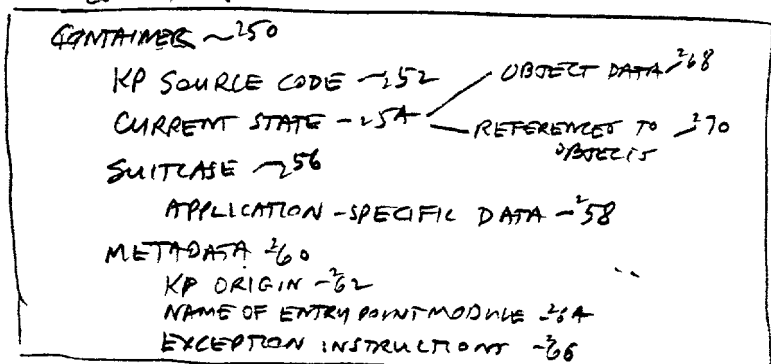 CONTAINER ~ 250
KP SOURCE CODE ~ 252
CURRENT STATE ~ 254
OBJECT DATA ~ 268
REFERENCES TO OBJECTS ~ 270
SUITCASE ~ 256
APPLICATION-SPECIFIC DATA ~ 258
METADATA ~ 260
KP ORIGIN ~ 262
NAME OF ENTRY POINT MODULE ~ 264
EXCEPTION INSTRUCTIONS ~ 266